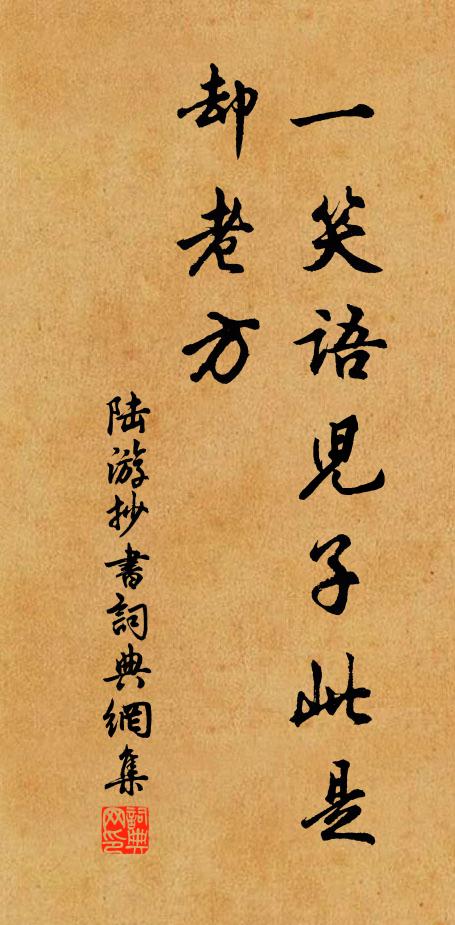 一笑語兒子此是
却老方
陆游抄書詞典網集
詞典网印